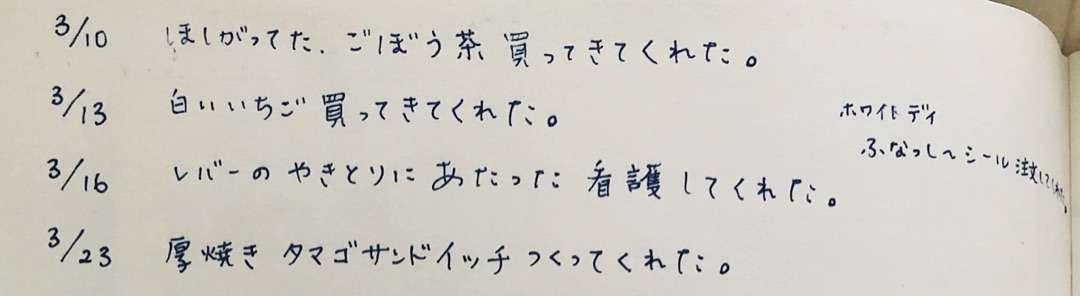 3/10 ほしがってた、ごぼう茶 買ってきてくれた。
3/13 白いいちご 買ってきてくれた。
ホワイトデイ
ふなっしーシール注文してくれた。
3/16 レバーの やきとりに あたった 看護してくれた。
3/23 厚焼き タマゴサンドイッチ つくってくれた。